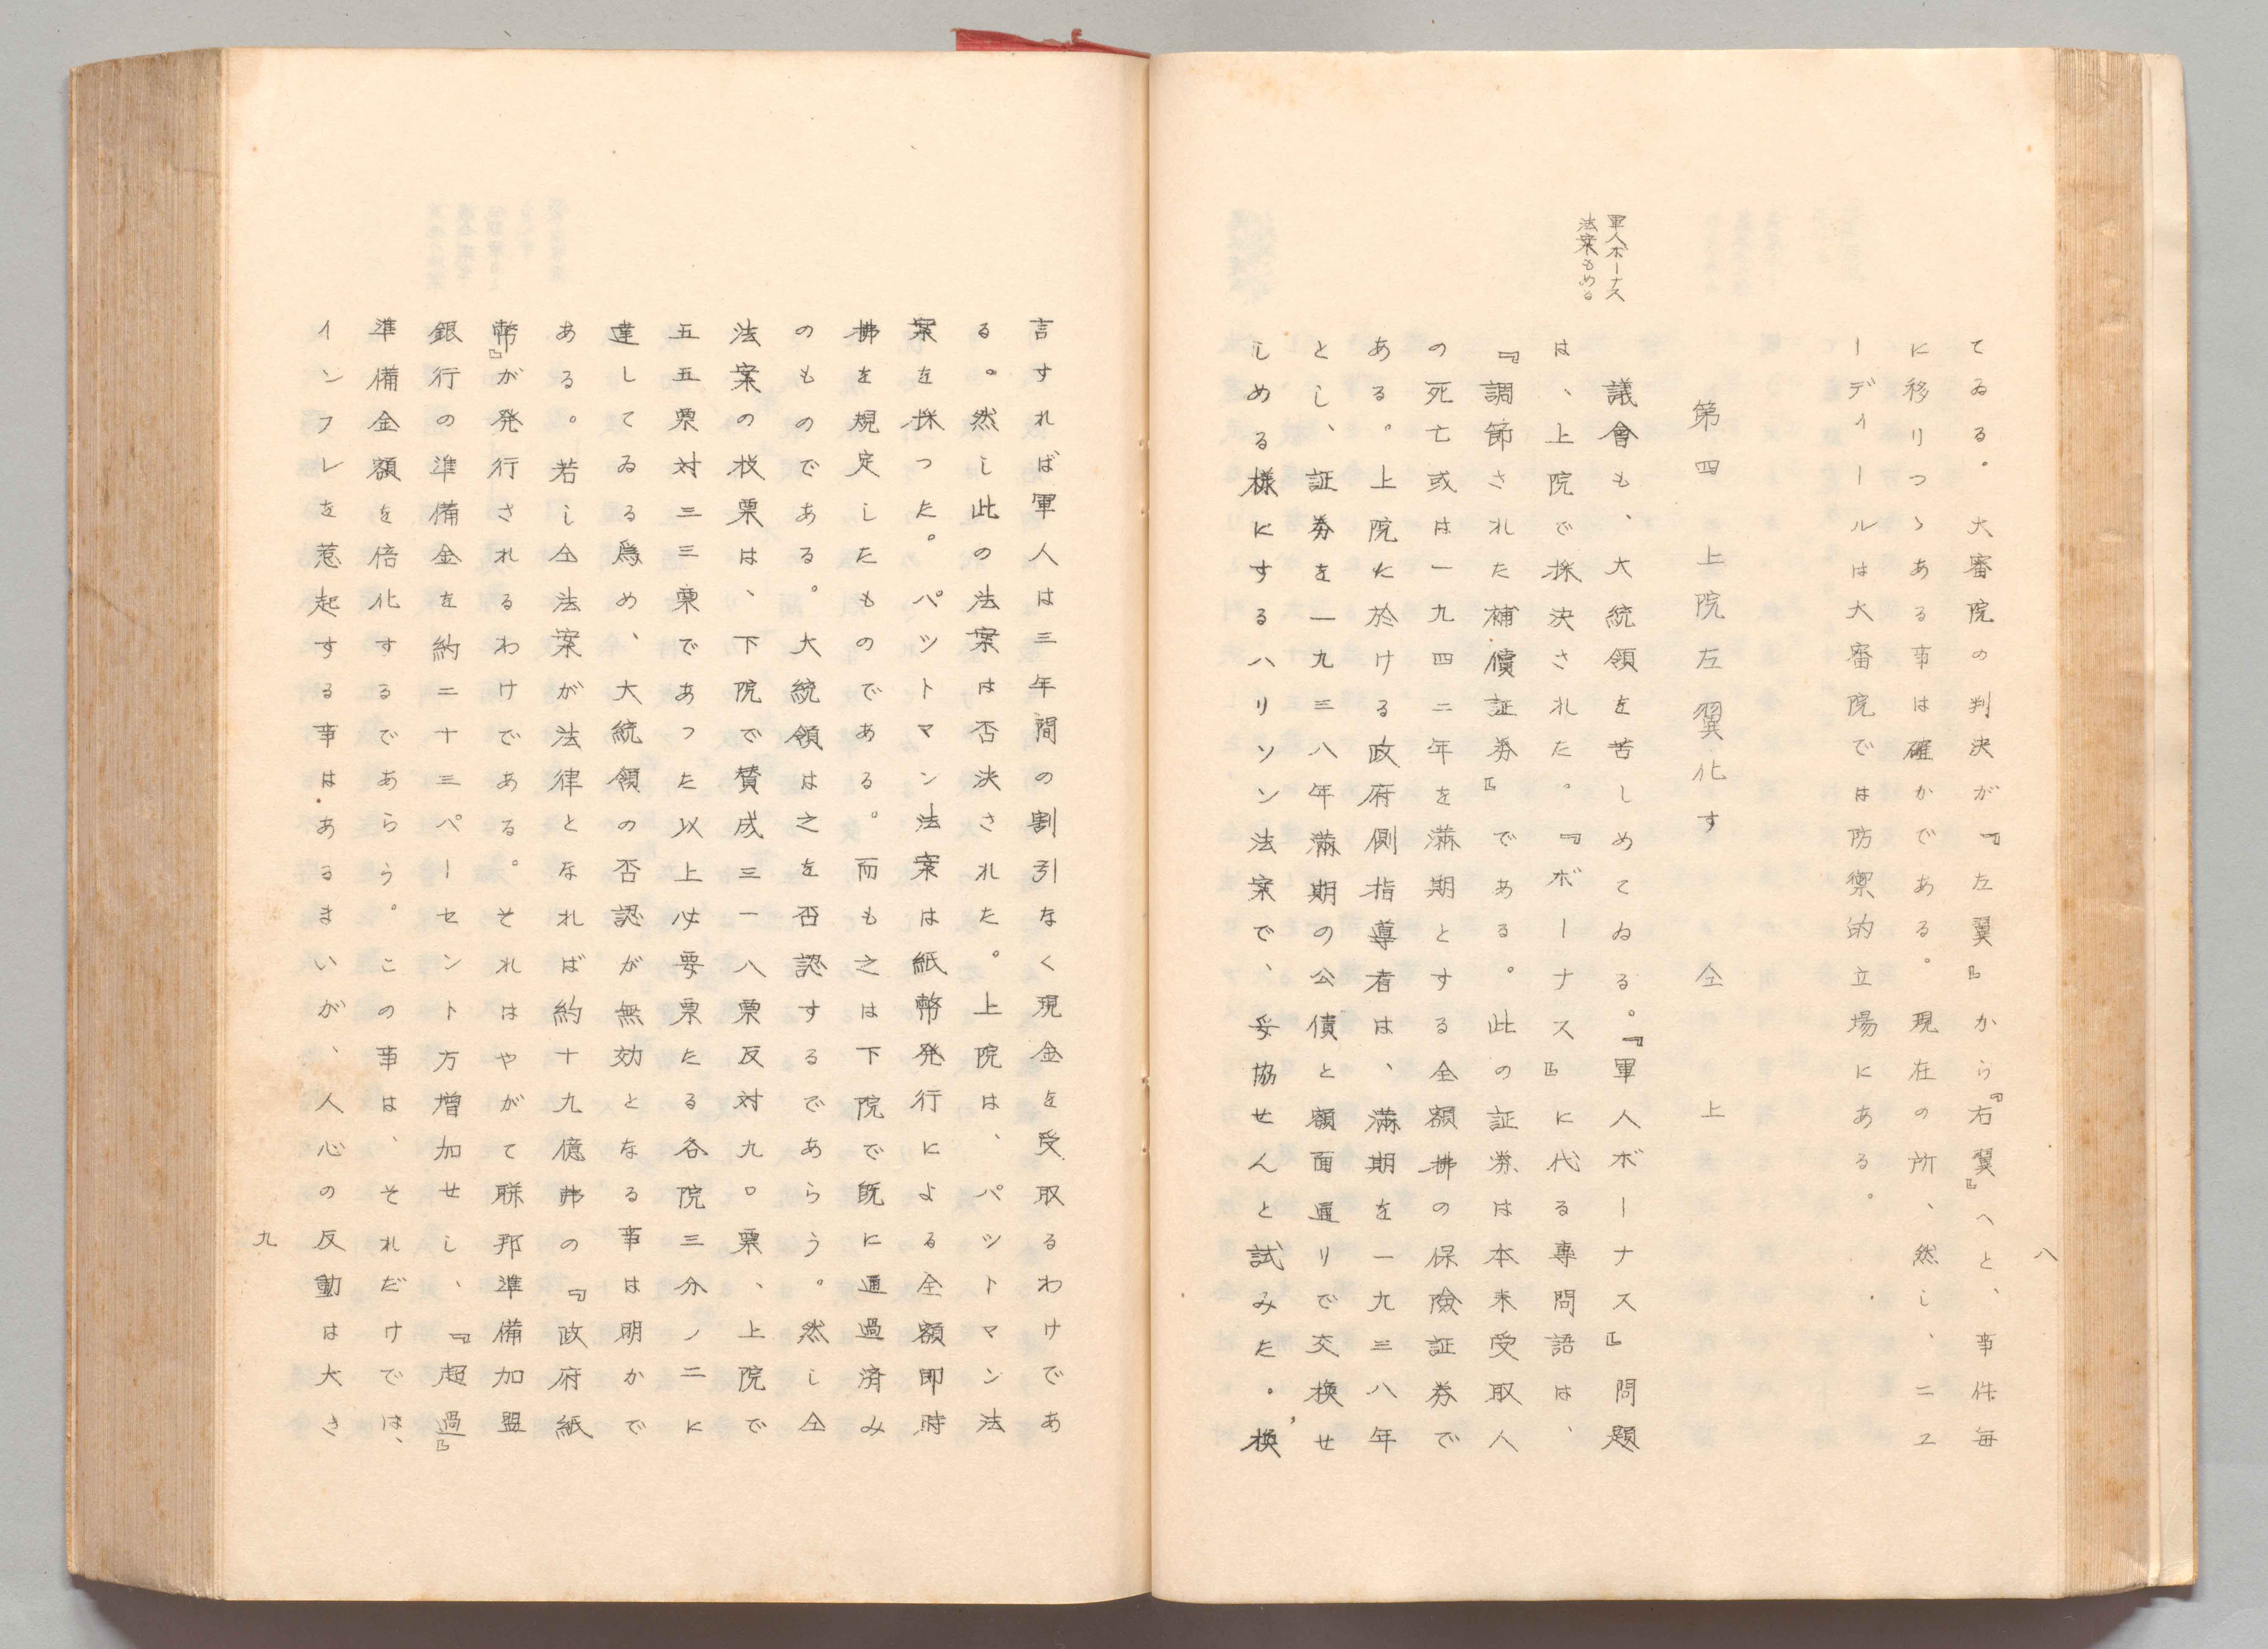 八
てゐる。大審院の判決が『左翼』から『右翼』へと、事件毎
に移りつゝある事は確かである。現在の所、然し、ニユ
ーディールは大審院では防禦的立場にある。
第四　上院左翼化す　仝上
軍人ボーナス
法案もめる
議會も、大統領を苦しめてゐる。『軍人ボーナス』問題
は、上院で採決された。『ボーナス』に代る専問語は、
『調節された補償証券』である。此の証券は本来受取人
の死亡或は一九四二年を満期とする全額拂の保險証券で
ある。上院に於ける政府側指導者は、満期を一九三八年
とし、証券を一九三八年満期の公債と額面通りで交換せ
しめる様にするハリソン法案で、妥協せんと試みた。換
言すれば軍人は三年間の割引なく現金を受取るわけであ
る。然し此の法案は否決された。上院は、パットマン法
案を採つた。パットマン法案は紙幣発行による全額即時
拂を規定したものである。而も之は下院で既に通過済み
のものである。大統領は之を否認するであらう。然し仝
法案の投票は、下院で賛成三一八票反対九〇票、上院で
五五票対三三票であつた以上必要票たる各院三分ノ二に
達してゐる爲め、大統領の否認が無効となる事は明かで
ある。若し仝法案が法律となれば約十九億弗の『政府紙
幣』が発行されるわけである。それはやがて聯邦準備加盟
銀行の準備金を約二十三パーセント方増加せし、『超過』
準備金額を倍化するであらう。この事は、それだけでは、
インフレを惹起する事はあるまいが、人心の反動は大き
九